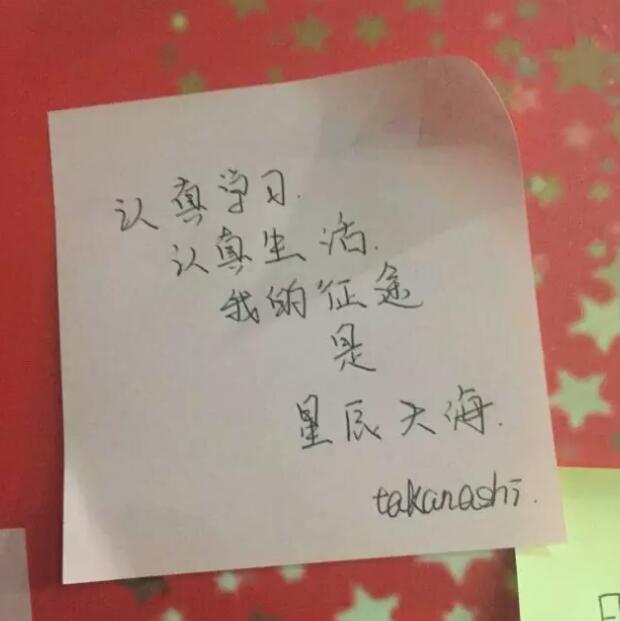 认真学习.
认真生活.
我的征途
是
星辰大海.
takanashi.